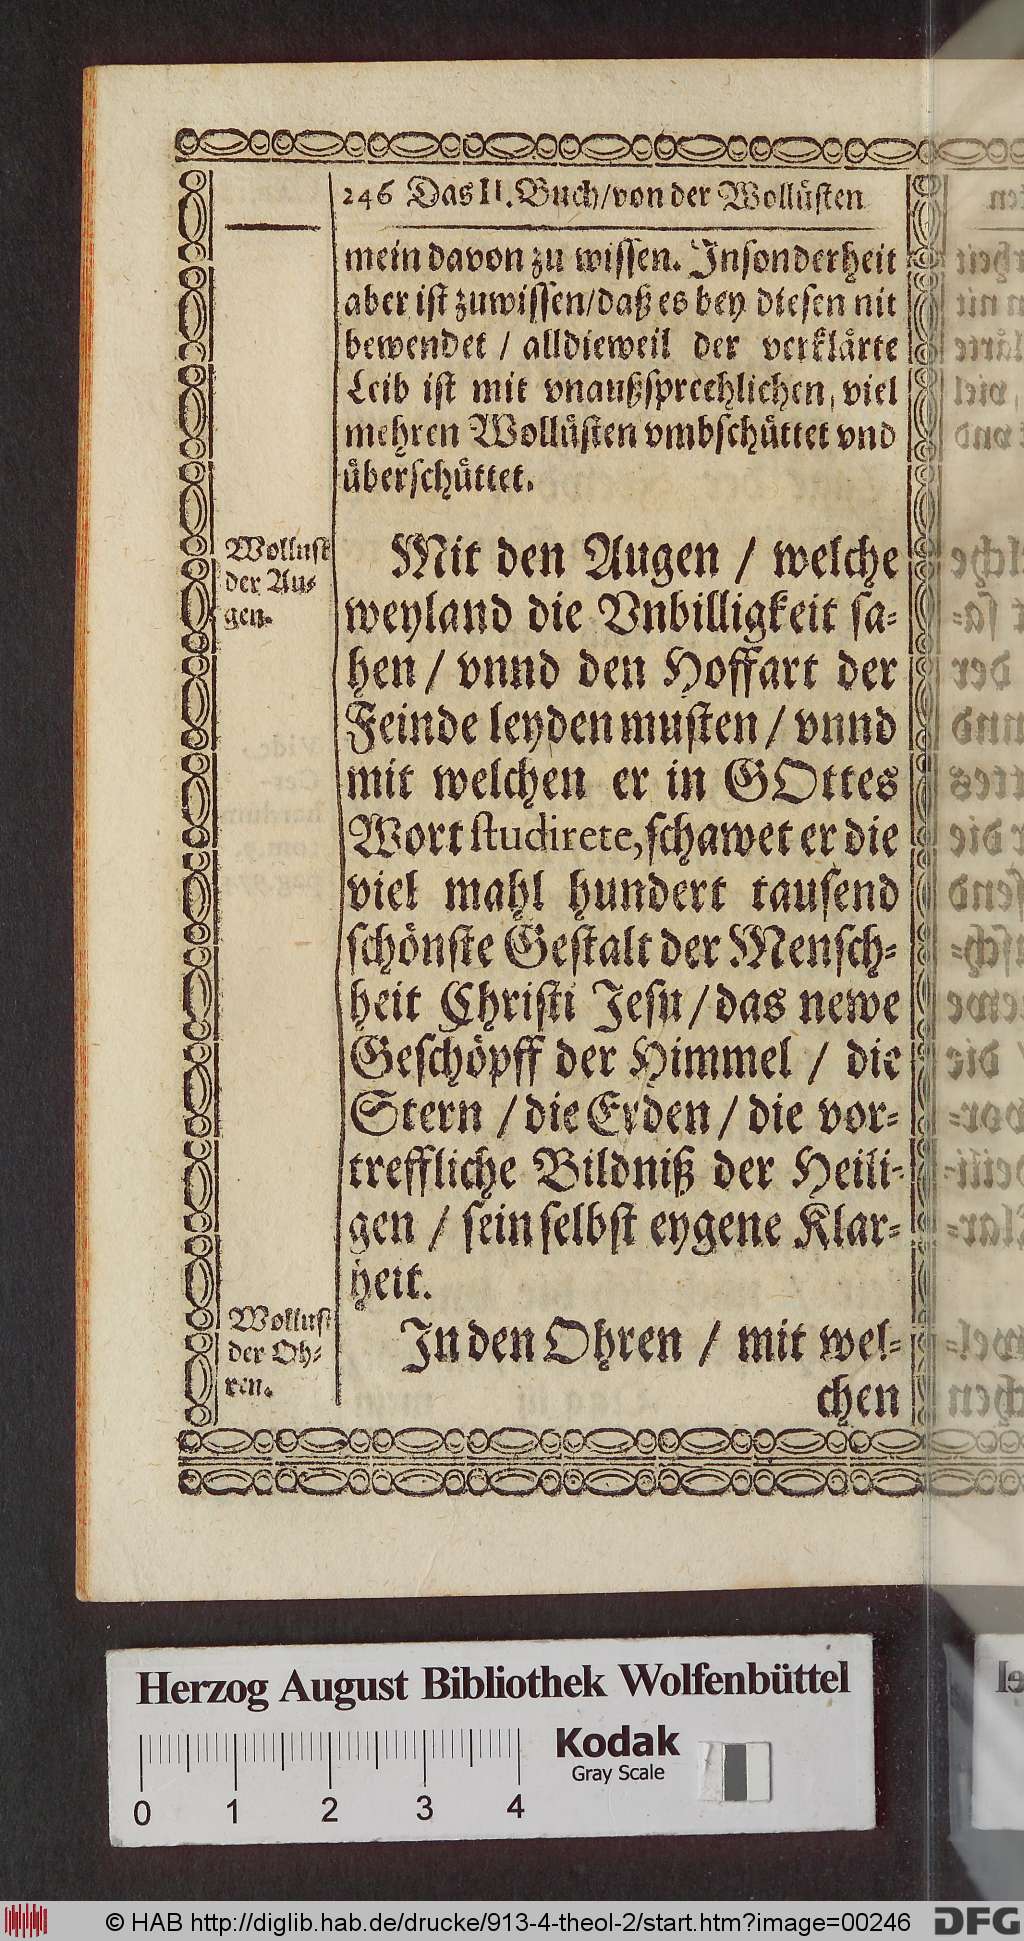 246 Das II. Buch/von der Wollüsten
mein davon zu wissen. Insonderheit
aber ist zuwissen/daß es bey diesen nit
bewendet / alldieweil der verklärte
Leib ist mit vnaußsprechlichen, viel
mehren Wollüsten vmbschüttet vnd
überschüttet.
Wollust
der Au-
gen.
Mit den Augen / welche
weyland die Vnbilligkeit sa-
hen / vnnd den Hoffart der
Feinde leyden musten / vnnd
mit welchen er in GOttes
Wort studirete, schawet er die
viel mahl hundert tausend
schönste Gestalt der Mensch-
heit Christi Jesu / das newe
Geschöpff der Himmel / die
Stern / die Erden / die vor-
treffliche Bildniß der Heili-
gen / sein selbst eygene Klar-
heit.
Wollust
der Oh-
ren.
In den Ohren / mit wel-
chen
Herzog August Bibliothek Wolfenbüttel
Kodak
Gray Scale
0 1 2 3 4
© HAB http://diglib.hab.de/drucke/913-4-theol-2/start.htm?image=00246
DFG